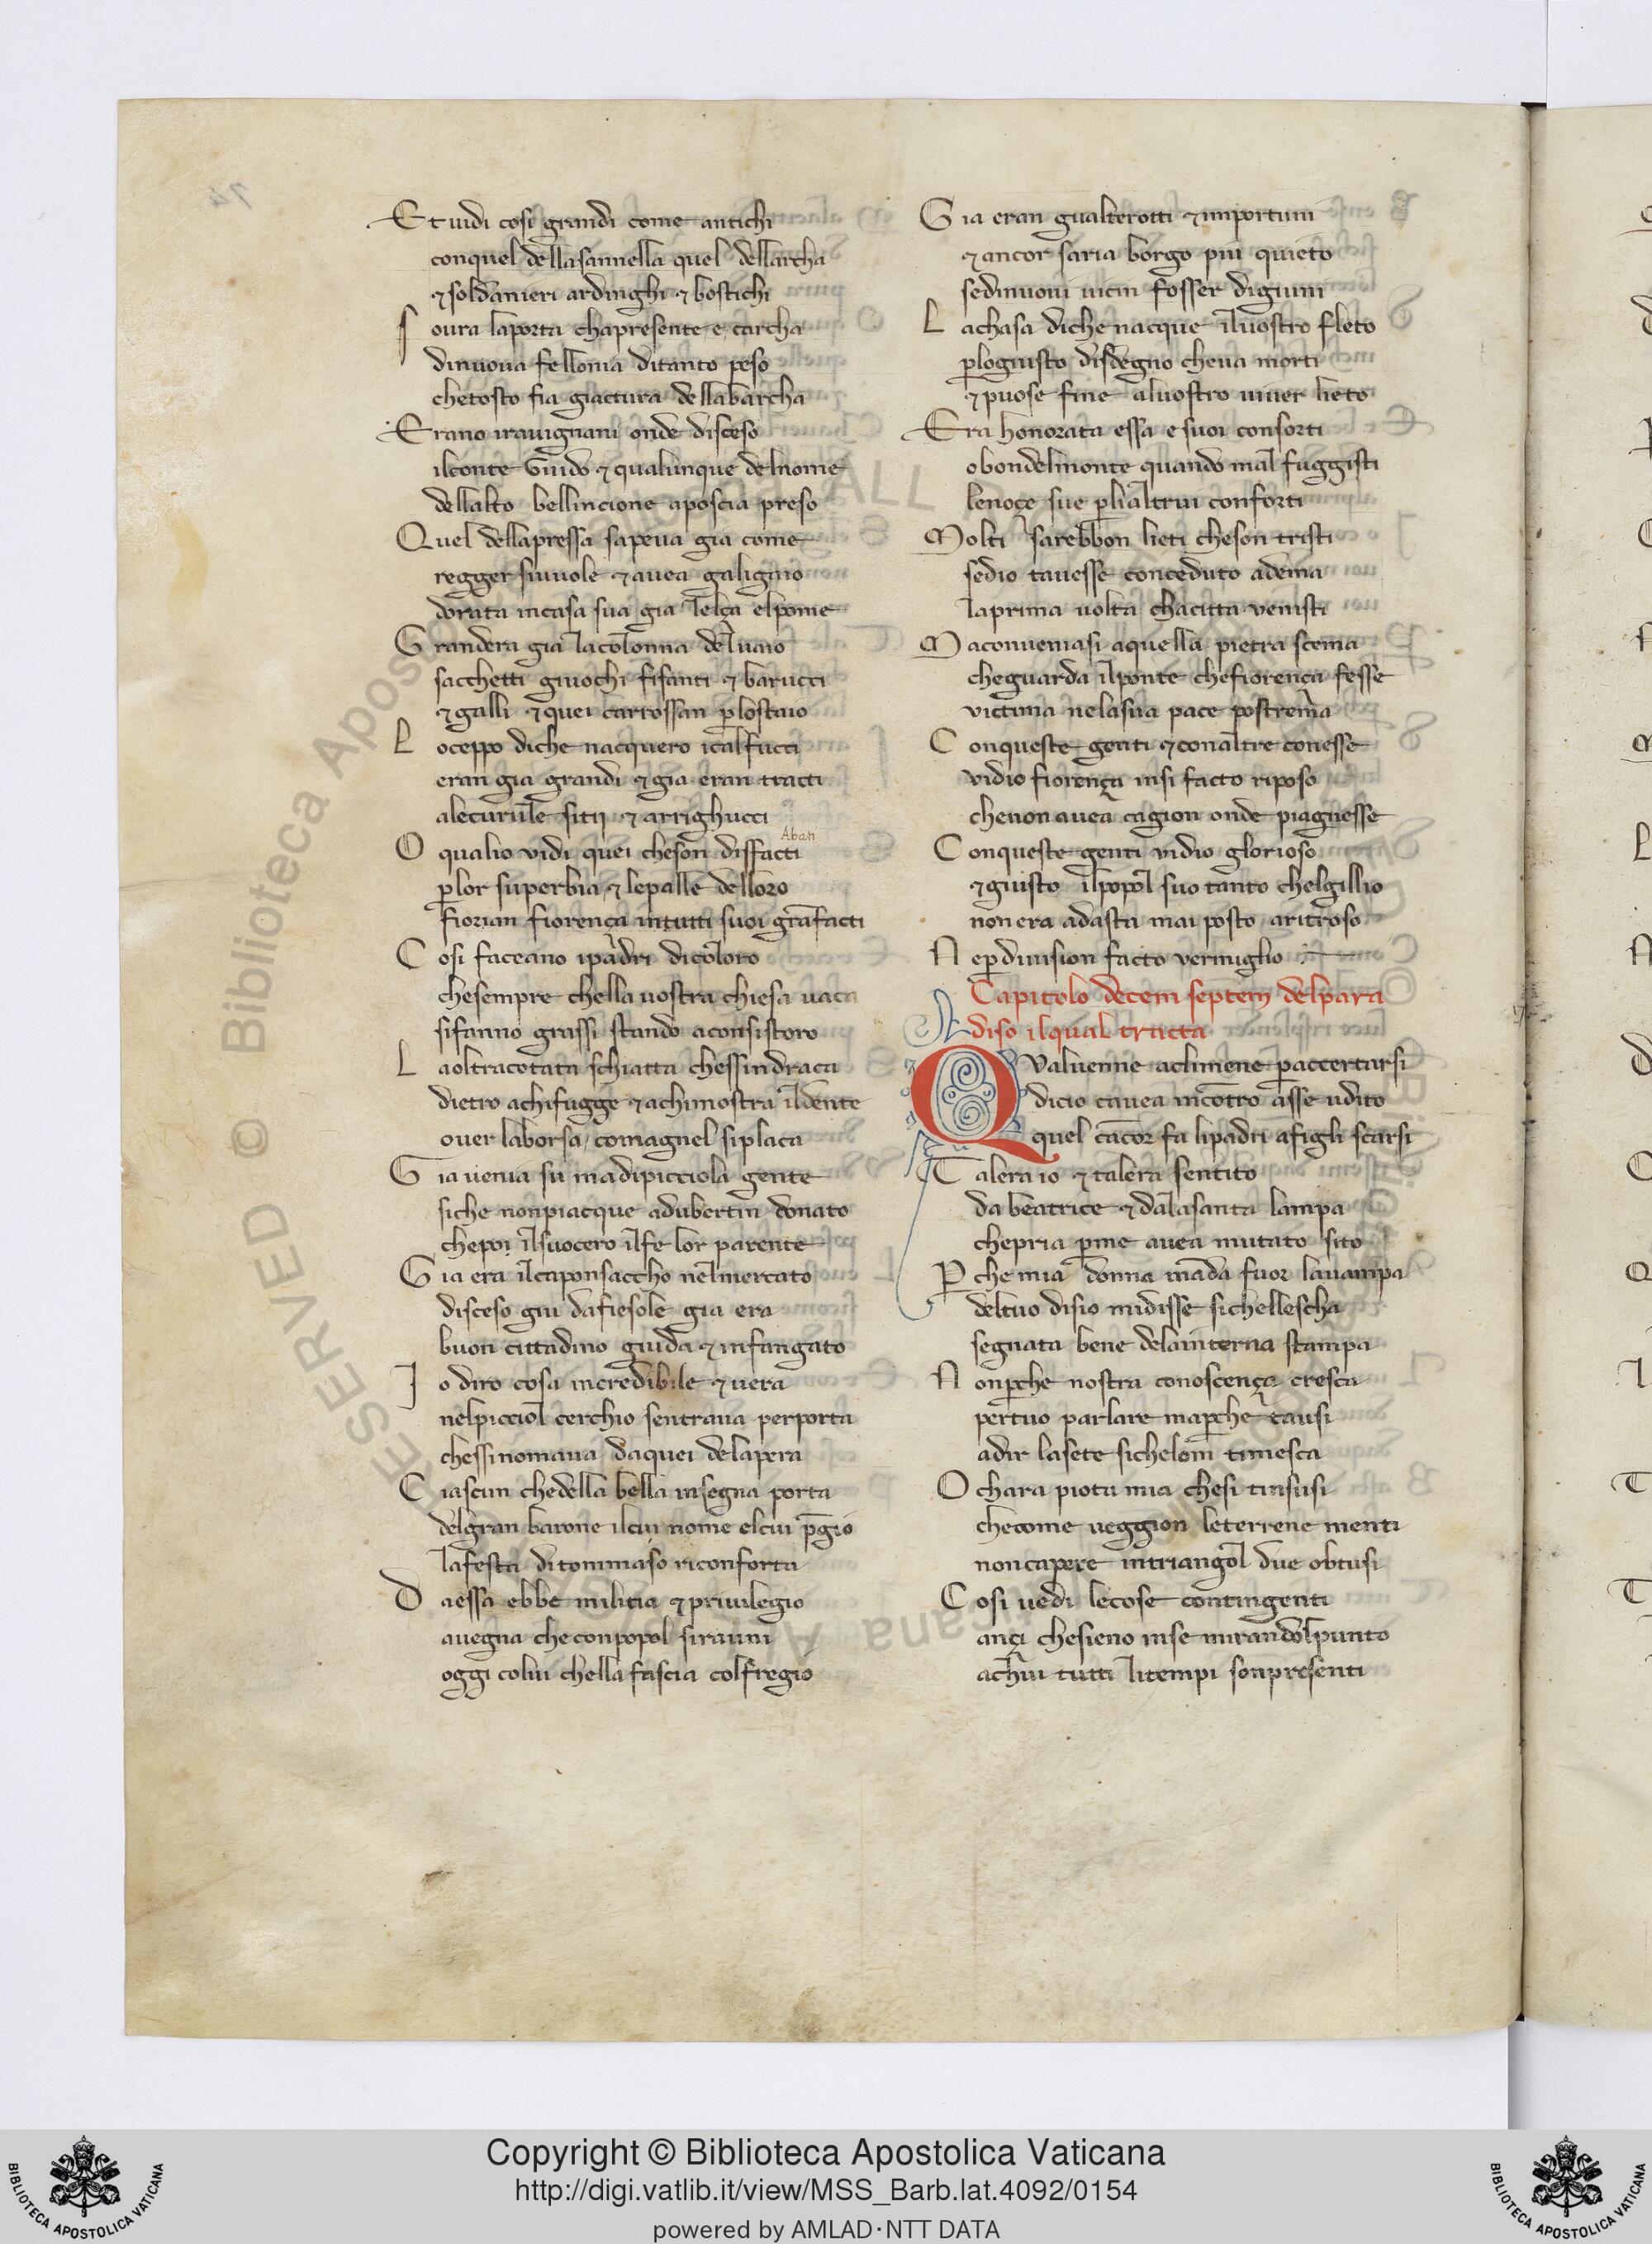 Et uidi cosi grandi come antichi
conquel dellasannella quel dellarcha
⁊ soldanieri ardinghi ⁊ bostichi
Soura laporta chapresente e carcha
dinuoua fellonia ditanto peso
chetosto fia giactura dellabarcha
Erano irauignani onde disceso
ilconte Guido ⁊ qualunque delnome
dellalto bellincione aposcia preso
Quel dellapressa sapeua gia come
regger siuuole ⁊ auea galigaio
dorata incasa sua gia lelça elpome
Grandera gia lacolonna deluaio
sacchetti giuochi fifanti ⁊ barucci
⁊ galli ⁊ quei carrossan ꝑlostaio
Loceppo diche nacquero icalfucci
eran gia grandi ⁊ gia eran tracti
alecurule sitij ⁊ arrighucci
Aban
O qualio vidi quei cheson disfacti
ꝑlor superbia ⁊ lepalle delloro
fiorian fiorença intutti suoi grāfacti
Cosi faceano ipadri dicoloro
chesempre chella uostra chiesa uaca
sifanno grassi stando aconsistoro
Laoltracotata schiatta chessindraca
dietro achifugge ⁊ achimostra ildente
ouer laborsa comagnel siplaca
Gia uenia su madipicciola gente
siche nonpiacque adubertin donato
chepoi ilsuocero ilfe lor parente
Gia era ilcaponsaccho nelmercato
disceso giu dafiesole gia era
buon cittadino giuda ⁊ infangato
Io diro cosa incredibile ⁊ uera
nelpicciol cerchio sentraua perporta
chessinomaua daquei delapera
Ciascun chedella bella insegna porta
delgran barone ilcui nome elcui p̄gio
lafesta ditommaso riconforta
Daessa ebbe militia ⁊ priuilegio
auegna checonpopol siraiuni
oggi colui chella fascia colfregio
Gia eran gualterotti ⁊ importuni
⁊ ancor saria borgo piu quieto
sedinuoui uicin fosser digiuni
Lachasa diche nacque iluostro fleto
ꝑlogiusto disdegno cheua morti
⁊ puose fine aluostro uiuer lieto
Era honorata essa e suoi consorti
o bondelmonte quando mal fuggisti
lenoçe sue ꝑlialtrui conforti
Molti sarebbon lieti cheson tristi
sedio tauesse conceduto adema
laprima uolta chacitta venisti
Maconueniasi aquella pietra scema
cheguarda ilponte chefiorença fesse
victima nelasua pace postrema
Conqueste genti ⁊ conaltre conesse
vidio fiorença insi facto riposo
chenon auea cagion onde piagnesse
Conqueste genti vidio glorioso
⁊ giusto ilpopol suo tanto chelgillio
non era adasta mai posto aritroso
Neꝑdiuision facto vermiglio
Capitolo decem septem delpara
diso ilqual tracta
Qvaluenne aclimene ꝑaccertarsi
dicio cauea incōtro asse udito
quel cācor fa lipadri afigli scarsi
Talera io ⁊ talera sentito
da beatrice ⁊ dalasanta lampa
chepria ꝑme auea mutato sito
Ꝑche mia donna māda fuor lauampa
deltuo disio midisse sichellescha
segnata bene delainterna stampa
Nonꝑche nostra conoscença cresca
pertuo parlare maꝑche tausi
adir lasete sichelom timesca
O chara piota mia chesi tinsusi
checome ueggion leterrene menti
noncapere intriangol due obtusi
Cosi uedi lecose contingenti
ançi chesieno inse mirandolpunto
achui tutti litempi sonpresenti
© Biblioteca Apostolica Vaticana
Copyright © Biblioteca Apostolica Vaticana
http://digi.vatlib.it/view/MSS_Barb.lat.4092/0154
powered by AMLAD·NTT DATA
BIBLIOTECA APOSTOLICA VATICANA
BIBLIOTECA APOSTOLICA VATICANA